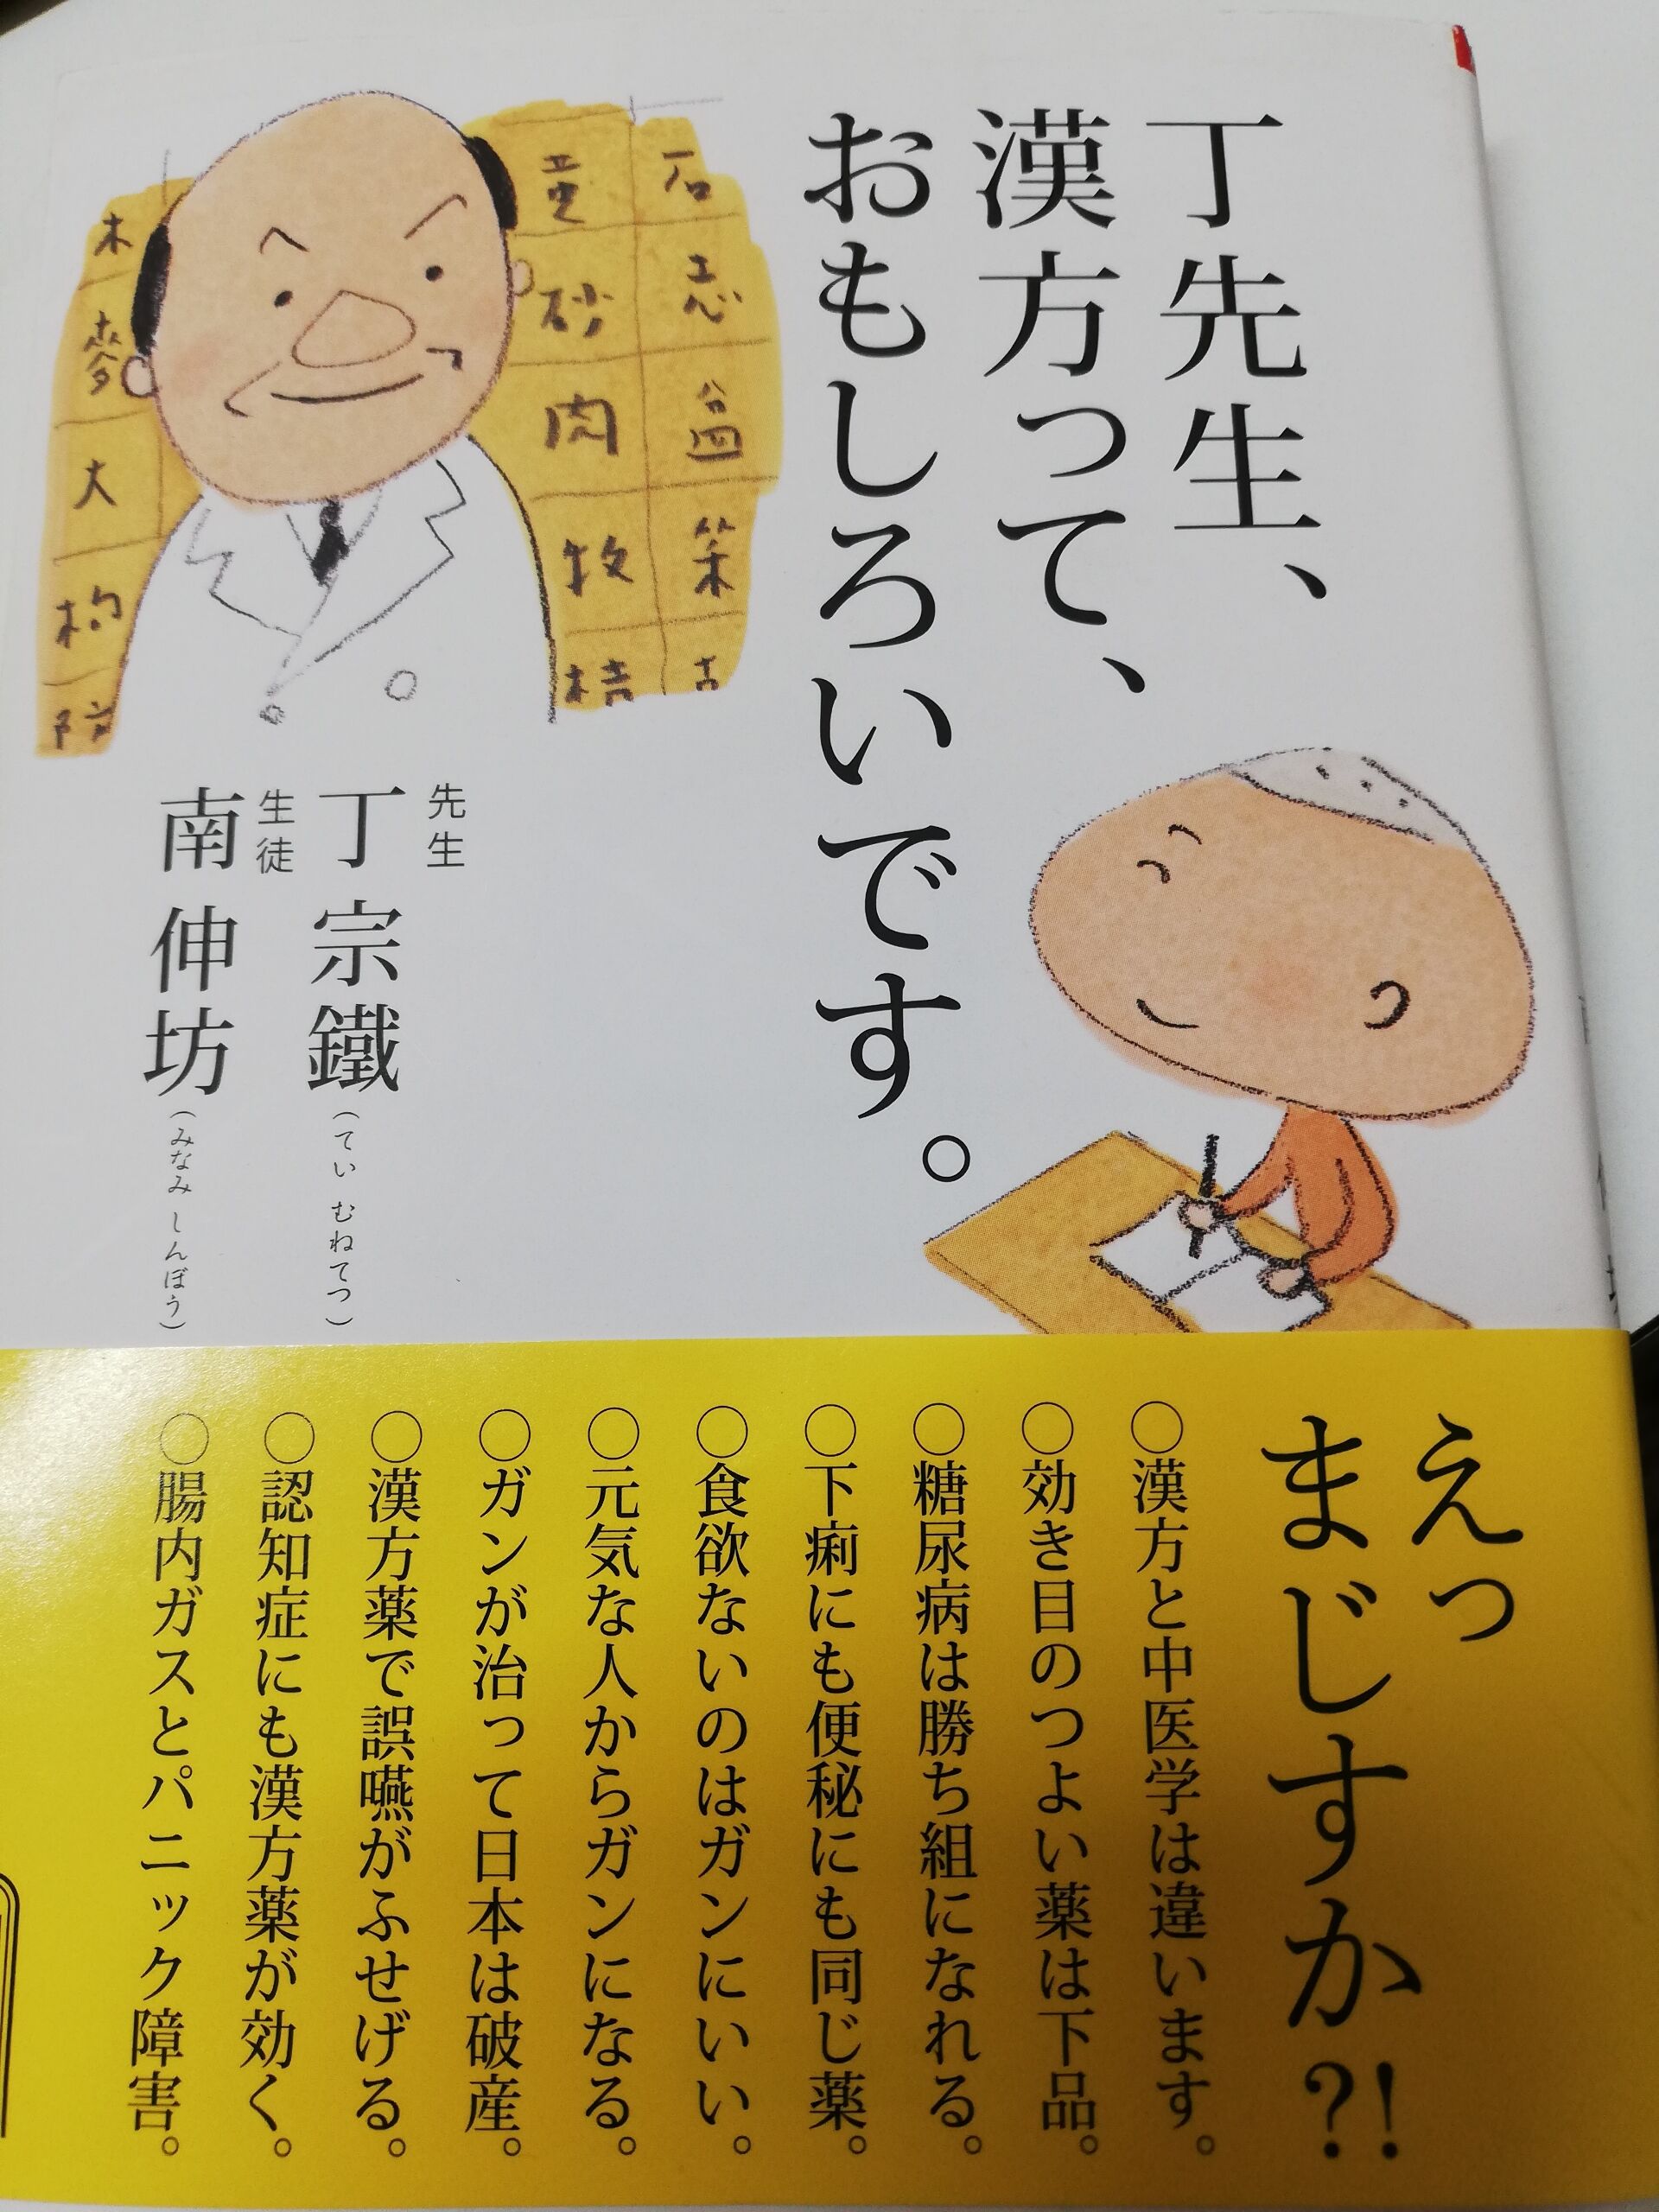 丁先生、
漢方って、
おもしろいです。
石
志
益
笨
古
亜
砂
肉
牧
桔
木
麥
大
枸
防
先生
丁宗鐵(てい むねてつ)
生徒
南伸坊(みなみ しんぼう)
えっ
まじすか?!
○漢方と中医学は違います。
○効き目のつよい薬は下品。
○糖尿病は勝ち組になれる。
○下痢にも便秘にも同じ薬。
○食欲ないのはガンにいい。
○元気な人からガンになる。
○ガンが治って日本は破産。
○漢方薬で誤嚥がふせげる。
○認知症にも漢方薬が効く。
○腸内ガスとパニック障害。